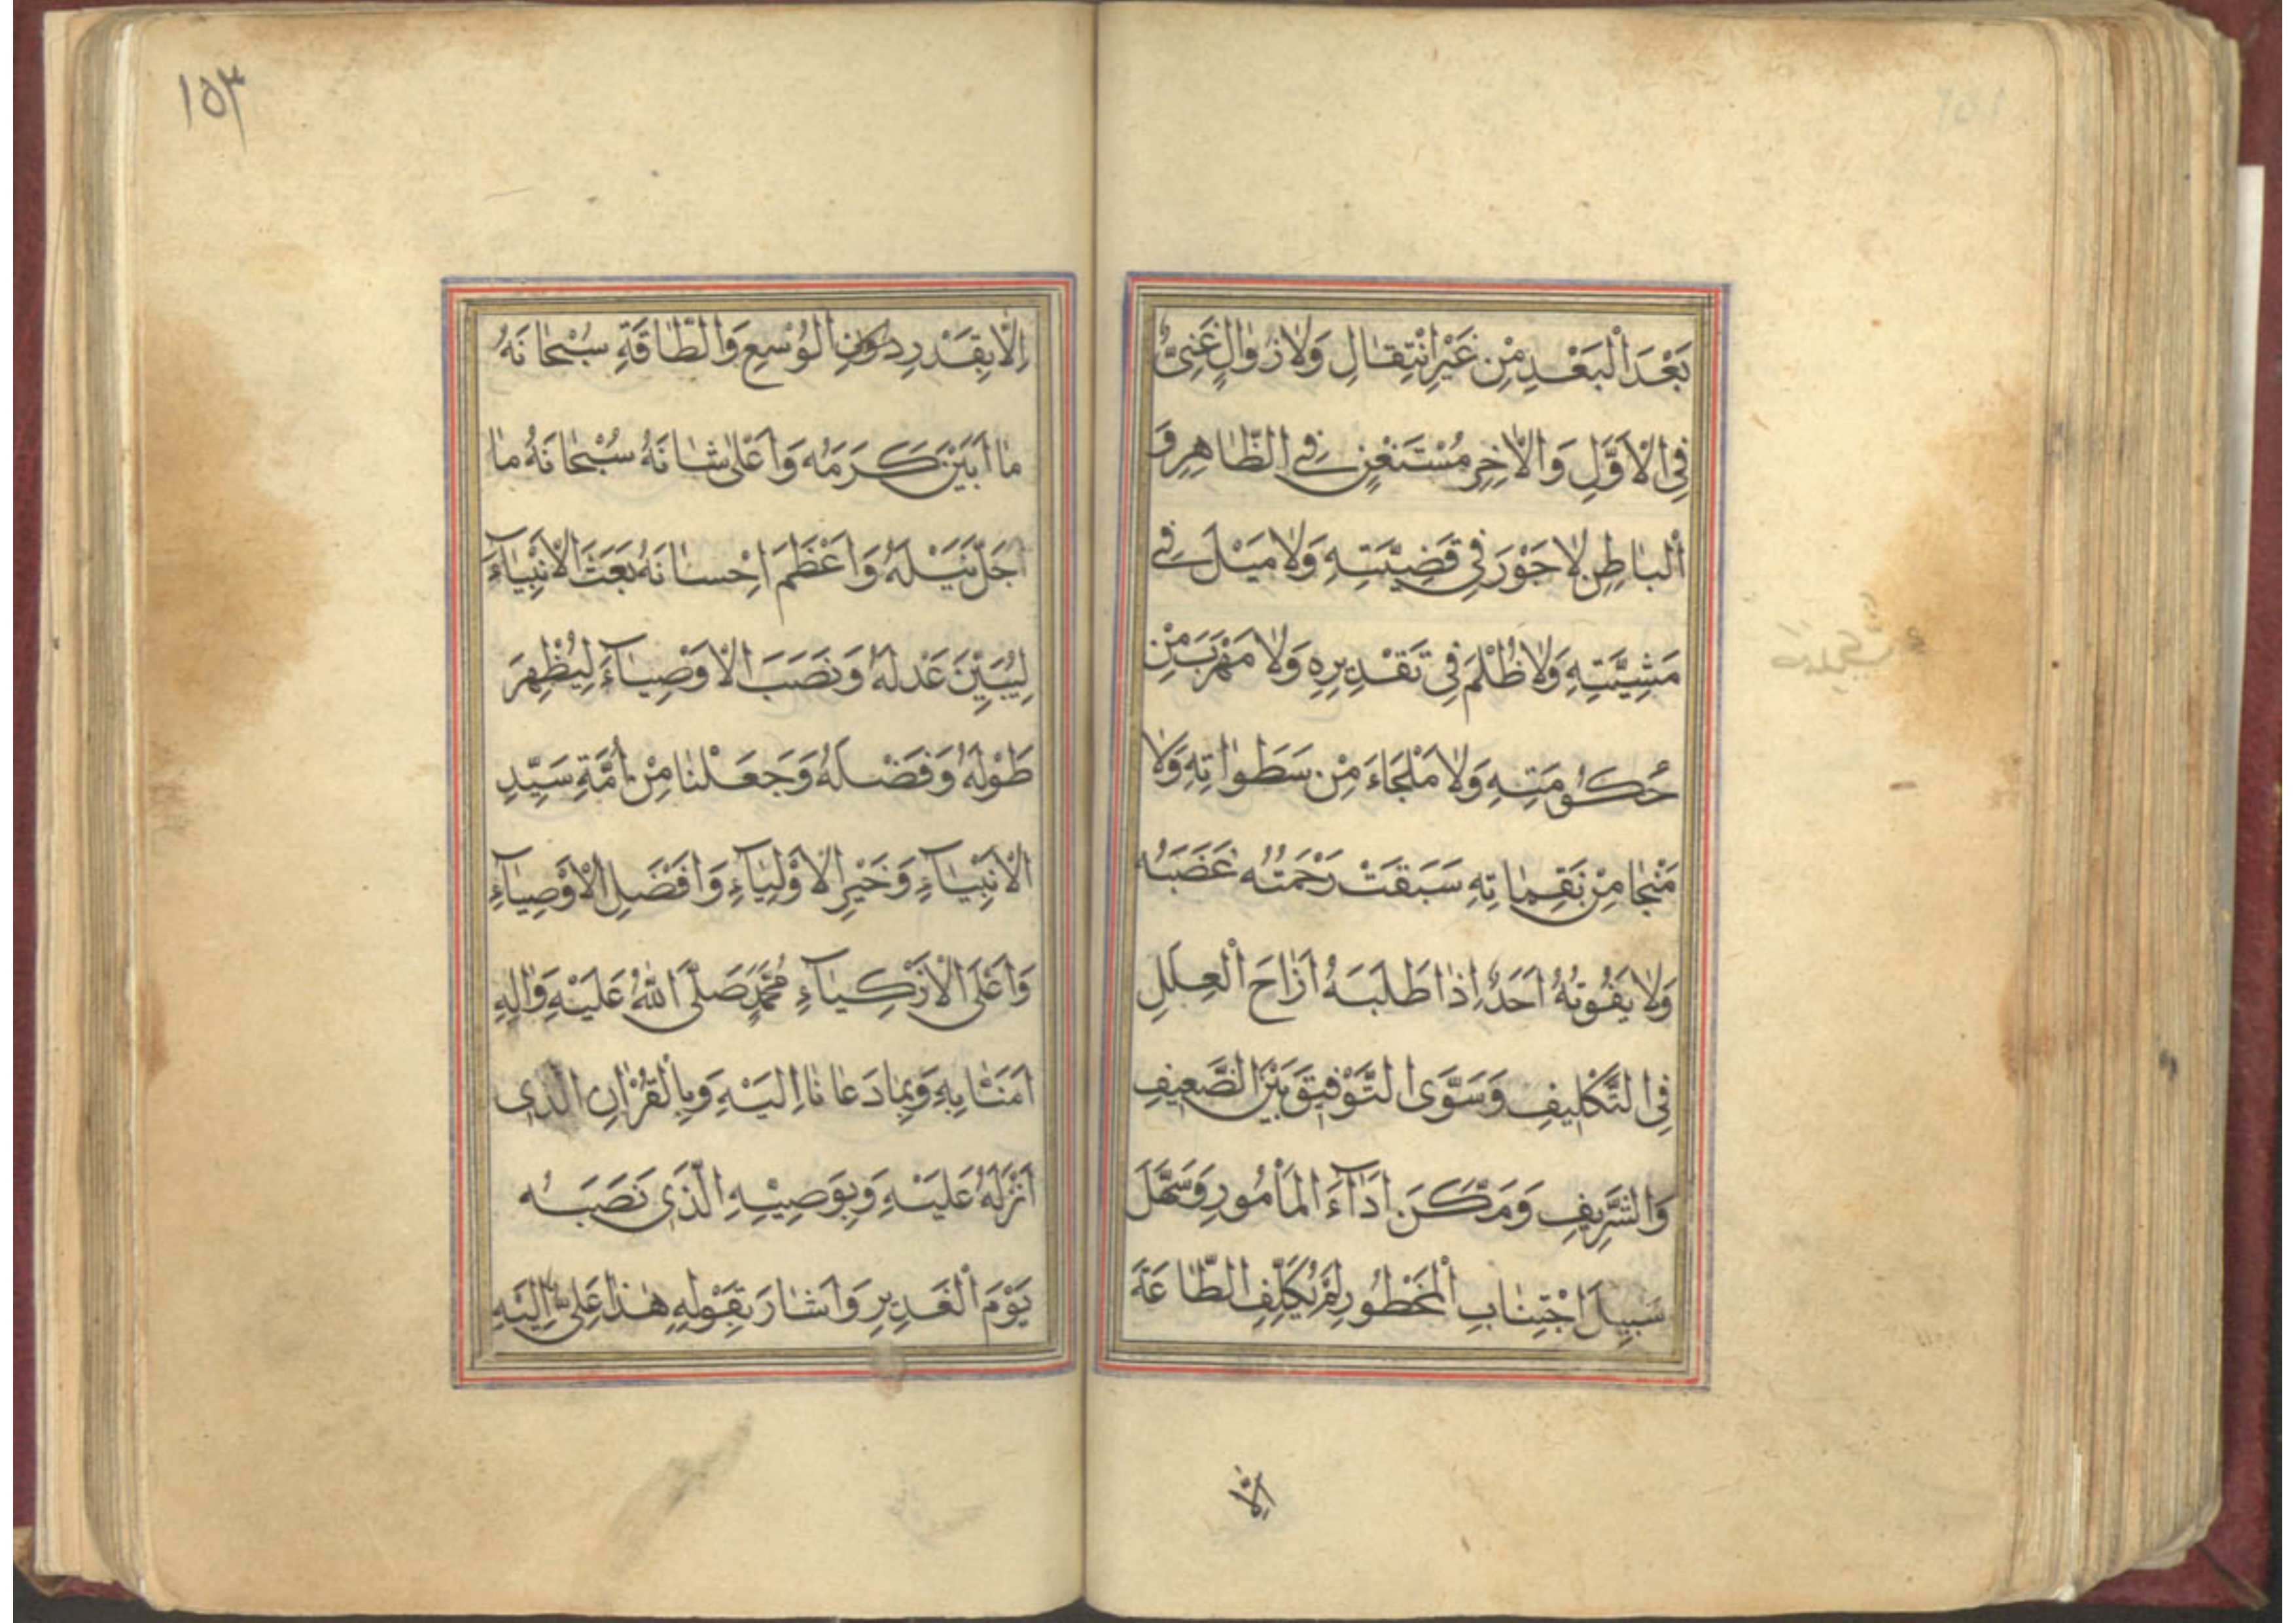 بَعْدَ الْبَعْدِ مِنْ غَيْرِ انْتِقالٍ وَلا زَوالٍ غَنِىٌّ
فِى الْاَوَّلِ وَالْاٰخِرِ مُسْتَغْنٍ فِى الظّاهِرِ وَ
الْباطِنِ لا جَوْرَ فِى قَضِيَّتِهِ وَلا مَيْلَ فِى
مَشِيَّتِهِ وَلا ظُلْمَ فِى تَقْدِيرِهِ وَلا مَهْرَبَ مِنْ
حُكُومَتِهِ وَلا مَلْجَاءَ مِنْ سَطَواتِهِ وَلا
مَنْجا مِنْ نَقِماتِهِ سَبَقَتْ رَحْمَتُهُ غَضَبَهُ
وَلا يَفُوتُهُ اَحَدٌ اِذا طَلَبَهُ اَزاحَ الْعِلَلِ
فِى التَّكْلِيفِ وَسَوَّى التَّوْفِيقَ بَيْنَ الضَّعِيفِ
وَالشَّرِيفِ وَمَكَّنَ اَدآءَ الْمَأْمُورِ وَسَهَّلَ
سَبِيلَ اجْتِنابِ الْمَحْظُورِ لَمْ يُكَلِّفِ الطّاعَةَ
اِلّا
١٥٣
اِلّا بِقَدْرِ دُونِ الْوُسْعِ وَالطّاقَةِ سُبْحانَهُ
ما اَبْيَنَ كَرَمَهُ وَاَعْلٰى شَانَهُ سُبْحانَهُ ما
اَجَلَّ نَيْلَهُ وَاَعْظَمَ اِحْسانَهُ بَعَثَ الْاَنْبِيآءَ
لِيُبَيِّنَ عَدْلَهُ وَنَصَبَ الْاَوْصِيآءَ لِيُظْهِرَ
طَوْلَهُ وَفَضْلَهُ وَجَعَلْنا مِنْ اُمَّةِ سَيِّدِ
الْاَنْبِيآءِ وَخَيْرِ الْاَوْلِيآءِ وَاَفْضَلِ الْاَوْصِيآءِ
وَاَعْلَى الْاَزْكِيآءِ مُحَمَّدٍ صَلَّى اللّٰهُ عَلَيْهِ وَاٰلِهِ
اٰمَنّا بِهِ وَبِما دَعانا اِلَيْهِ وَبِالْقُرْاٰنِ الَّذِى
اَنْزَلَهُ عَلَيْهِ وَبِوَصِيِّهِ الَّذِى نَصَبَهُ
يَوْمَ الْغَدِيرِ وَاَشارَ بِقَوْلِهِ هٰذا عَلِىٌّ اِلَيْهِ